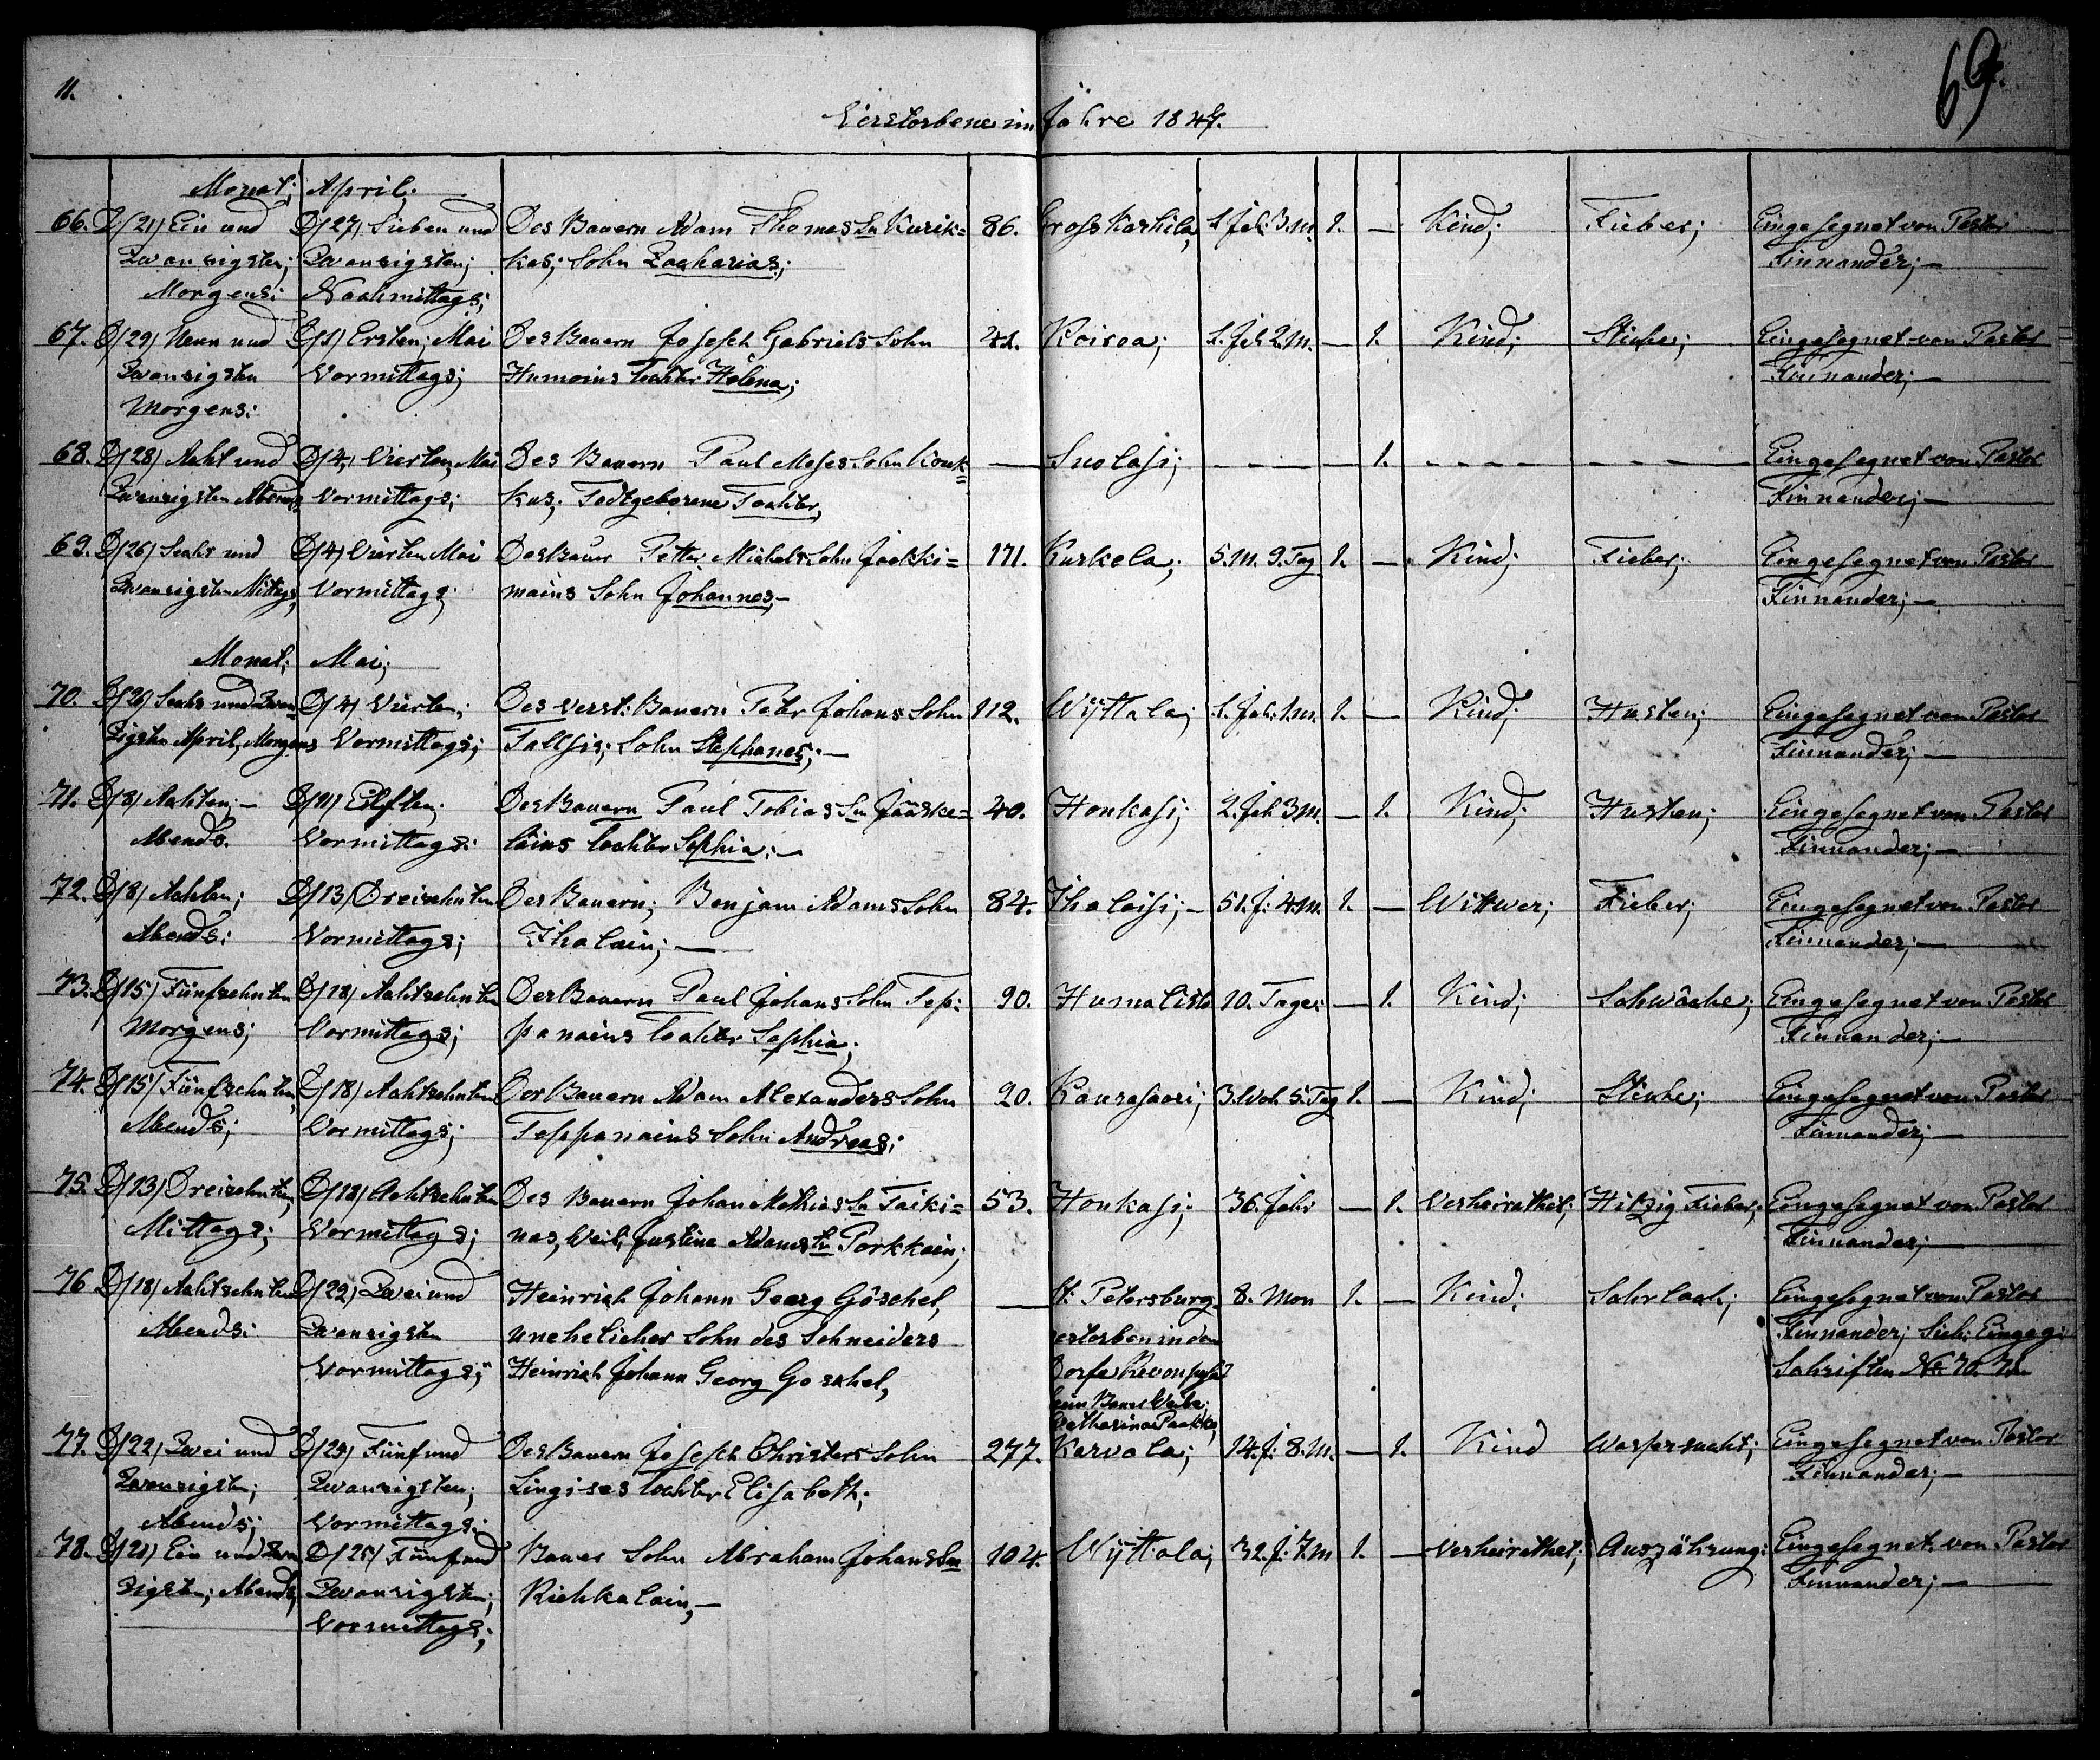 11.
69.
Verstorbene im Jahre 1847.
Monat; April.
66. D/21/ Ein und D/27/ Sieben und Des Bauern Adam Thomas Sn Kurik= 86. Gross Karkila, 1. Jah: 3. M. 1. — Kind; Fieber; Eingesegnet von Pastor
Zwanzigsten; Zwanzigsten; kas; Sohn Zacharias; Finnander; —
Morgens: Nachmittags;
67. D/29/ Neun und D/1/ Ersten; Mai Des Bauern Joseph Gabriels Sohn 41. Koiroa; 1. Jah 2. M. — 1. Kind; Stiche; Eingesegnet von Pastor
Zwanzigsten Vormittags; Humoins Tochter Helena; Finnander; —
Morgens:
68. D/28/ Acht und D/4/ Vierten, Mai Des Bauern Paul Moses Sohn Kouk= — Suolasi; — — 1. - - - - - - Eingesegnet von Pastor
Zwanzigsten Abends, Vormittags; kus; Todtgeborene Tochter, Finnander; —
69. D/26/ Sechs und D/4/ Vierten Mai Des Bauer Petter Michels Sohn Jaeski= 171. Kurkela; 5. M. 9. Tag 1. — Kind; Fieber; Eingesegnet von Pastor
Zwanzigsten Mittags, Vormittags; mains Sohn Johannes, — Finnander; —
Monat; Mai;
70. D/26/ Sechs und Zwan= D/4/ Vierten; Des verst: Bauern Petr Johans Sohn 112. Wÿttala; 1. Jah: 1 M. 1. — Kind; Husten; Eingesegnet von Pastor
zigsten April, Morgens Vormittags; Tallsis; Sohn Stephanes; — Finnander; —
71. D/8/ Achten; — D/11/ Eilften; Des Bauern Paul Tobias Sn Jääske= 40. Honkasi; 2. Jah 3 M. — 1. Kind; Husten; Eingesegnet von Pastor
Abends. Vormittags: läins Tochter Sophia; — Finnander; —
72. D/8/ Achten; D/13/ Dreizehnten Des Bauern; Benjam Adams Sohn 84. Ihalaisi; — 51. J: 4. M. 1. — Wittwer; Fieber; Eingesegnet von Pastor
Abends; Vormittags; Ihalain; — Finnander; —
73. D/15/ Fünfzehnten D/18/ Achtzehnten Des Bauern Paul Johans Sohn Tep: 90. Humalisto 10. Tage: — 1. Kind; Schwäche; Eingesegnet von Pastor
Morgens; Vormittags; panains Tochter Sophia; Finnander; —
74. D/15/ Fünfzehnten, D/18/ Achtzehnten Der Bauern Adam Alexanders Sohn 20. Kaurasaari; 3. Woh 5. Tag 1. — Kind; Stiche; Eingesegnet von Pastor
Abends; Vormittags; Teppanains Sohn Andreas; Finnander; —
75. D/13/ Dreizehnten, D/18/ Achtzehnten Des Bauern Johan Mathias Sn Taiki= 53. Honkasi; 36. Jahr — 1. Verheirathet; Hitzig Fieber; Eingesegnet von Pastor
Mittags; Vormittags; nas, Weib, Justina Adams Tr Porkkain; Finnander; —
76 D/18/ Achtzehnten D/22/ Zwei und Heinrich Johann Georg Göschel, — St: Petersburg 8. Mon 1. — Kind; Scharlach; Eingesegnet von Pastor
Abends: Zwanzigsten unehelicher Sohn des Schneiders estorben in dem Finnander; Sieh: Eingeg:
Vormittags; Heinrich Johann Georg Goschel, Dorfe Schriften No: 70. 71.
beim Bauer Weibe,
Catharina Paakko
77. D/22/ Zwei und D/25/ Fünf und Des Bauern Joseph Christers Sohn 277. Karvala; 14. J: 8. M. — 1. Kind Wassersucht; Eingesegnet von Pastor
Zwanzigsten; Zwanzigsten; Lingises Tochter Elisabeth; Finnander; —
Abends; Vormittags;
78. D/21/ Ein und Zwan D/25/ Fünf und Bauer Sohn Abraham Johans Sn 104. Wÿttala; 32. J: 7. M 1. — Verheirathet; Auszährung: Eingesegnet von Pastor
zigsten; Abends, Zwanzigsten; Riehkalain, — Finnander; —
Vormittags;